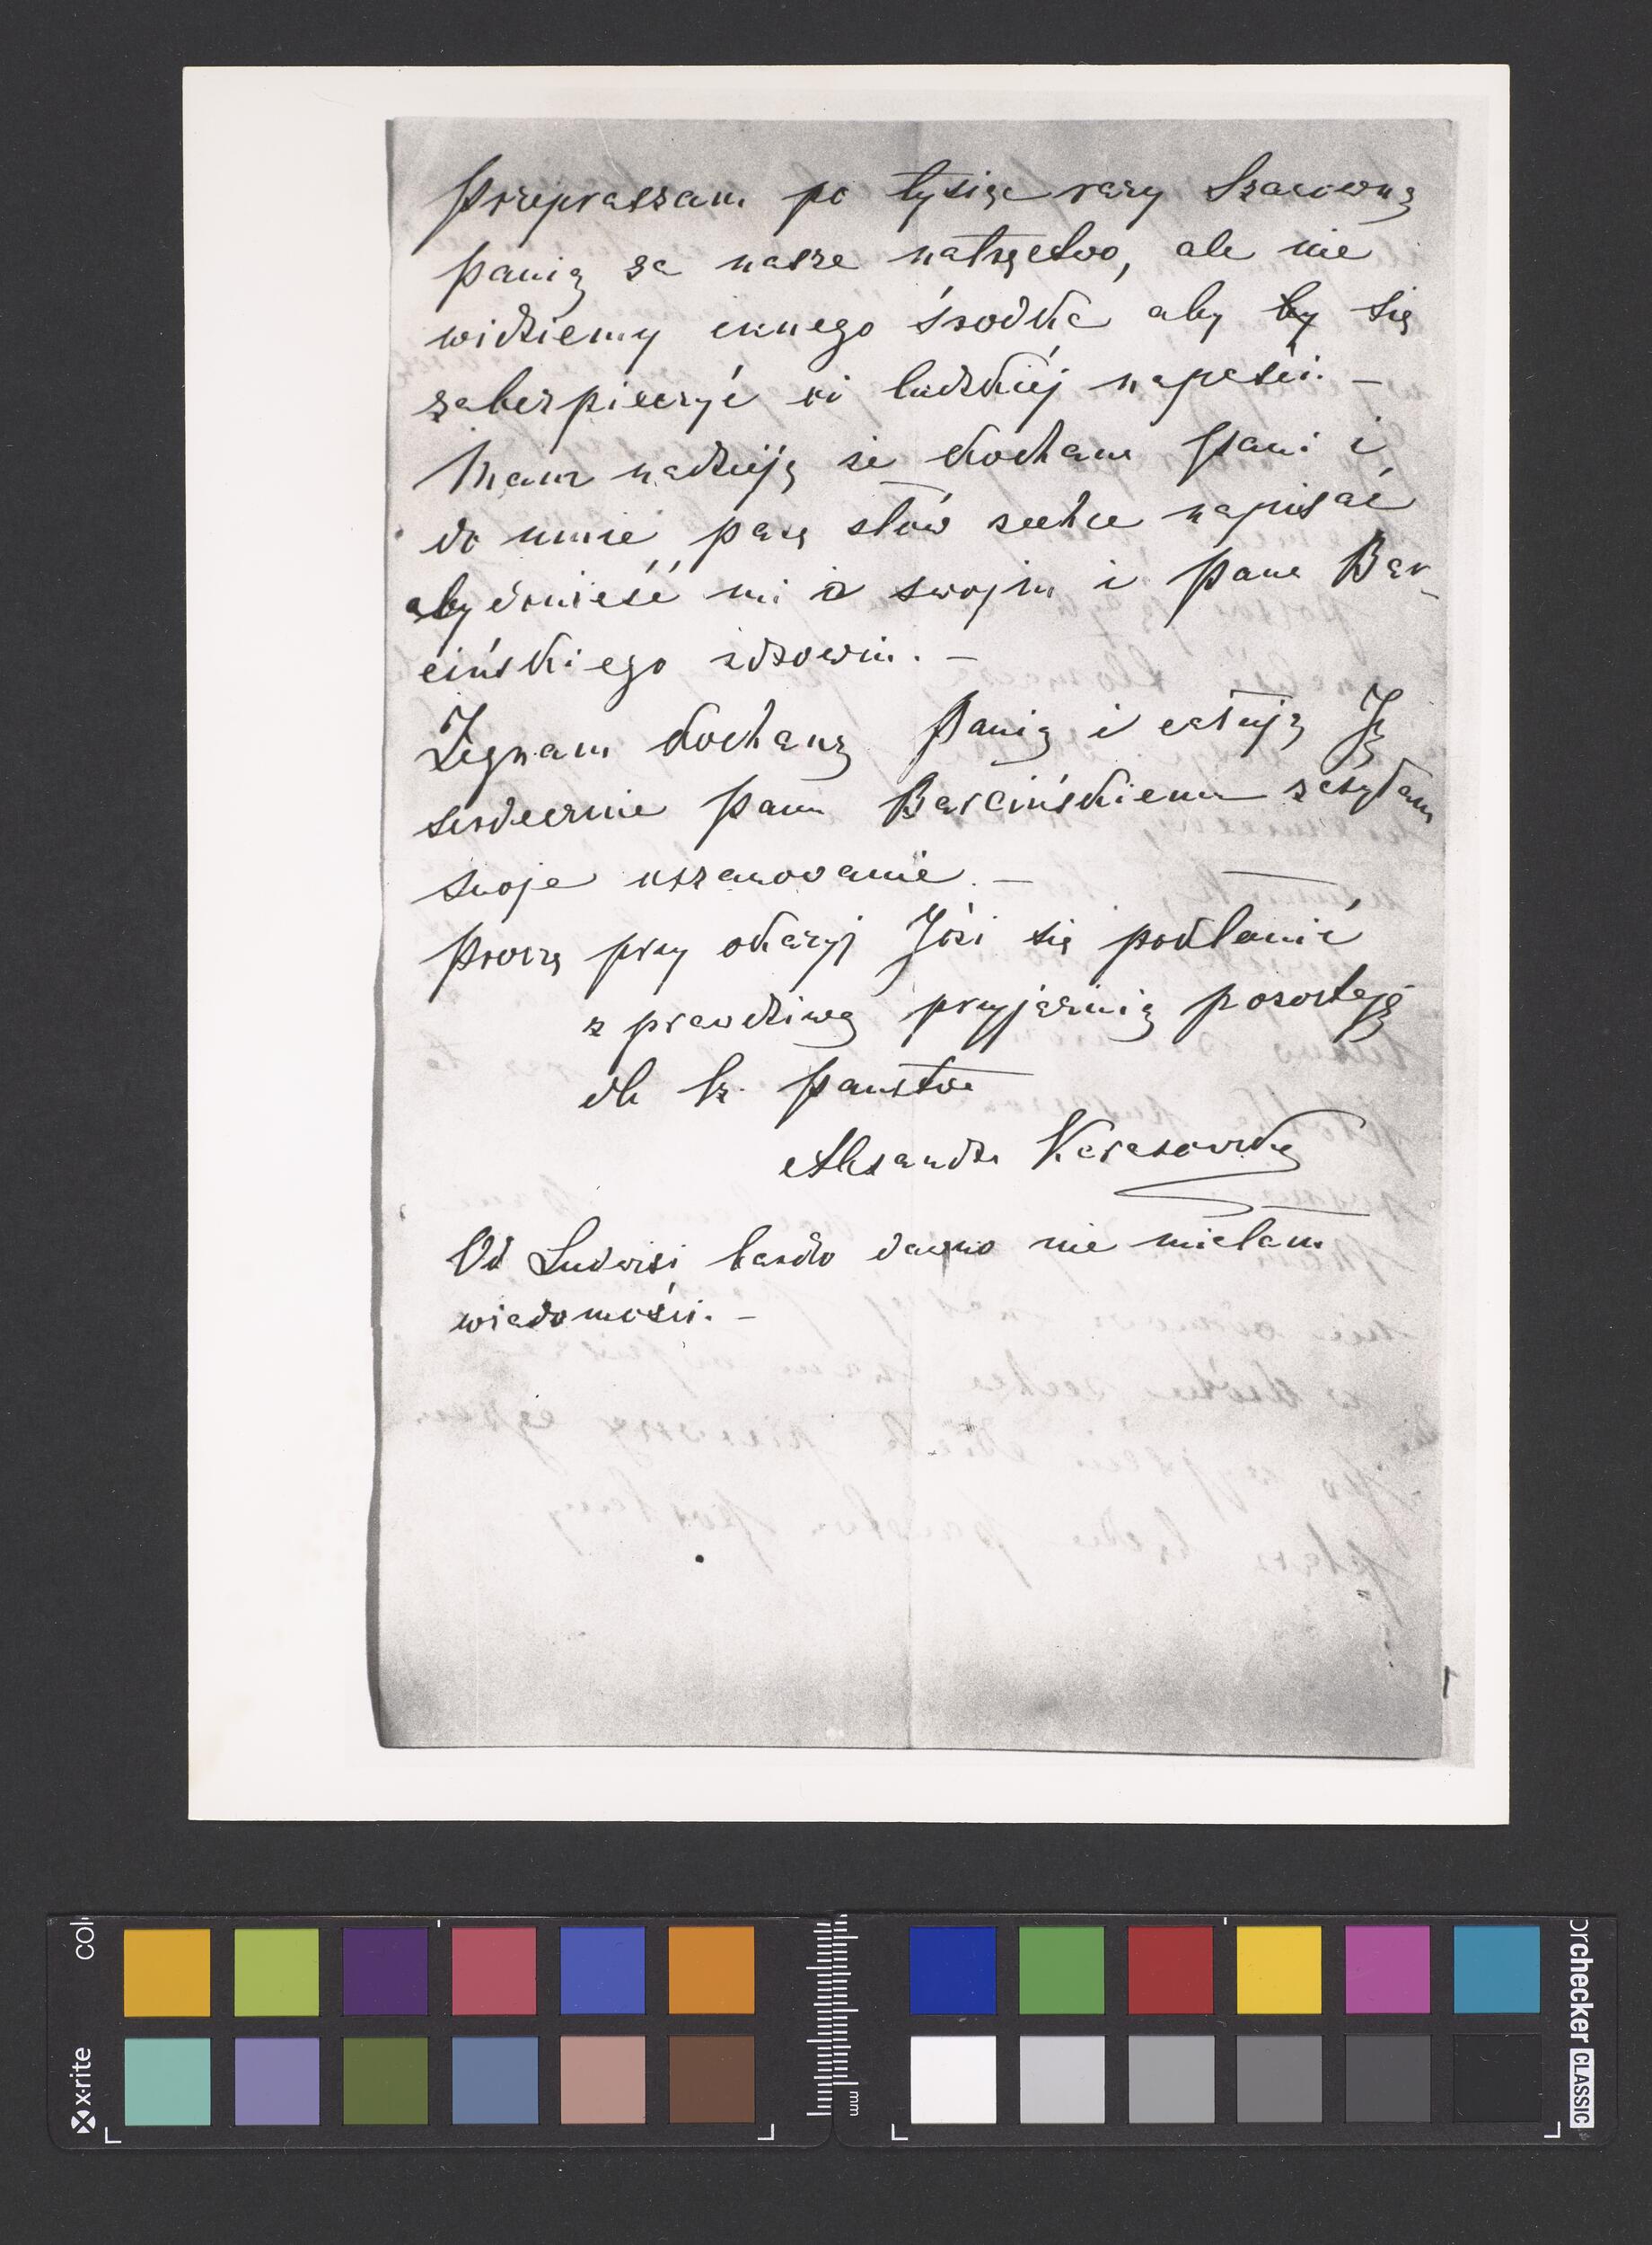 Przepraszam po tysiąc razy Szacowną
Panią za nasze natręctwo, ale nie
widziemy innego środka aby by się
zabezpieczyć od ludzkiej napaści. –
Mam nadzieję że kochana Pani i
do mnie parę słów zechce napisać
aby donieść mi o swojm i Pana Bar-
cińskiego zdrowiu. –
Żegnam kochaną Panią i całuję Ją
serdecznie Panu Barcińskiemu zasyłam
swoje uszanowanie. –
Proszę przy okazyj Józi się pokłonić
z prawdziwą przyjaźnią pozostaję
dla Sz. Państwa
Aleksandra Karasowska
Od Ludwisi bardzo dawno nie miałam
wiadomości. –
x·rite
col
mm
orchecker CLASSIC